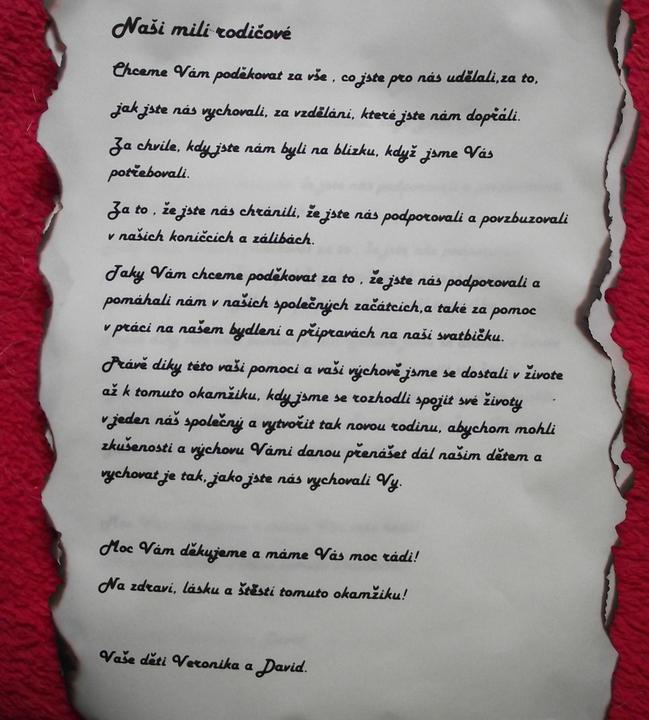 Naši milí rodičové
Chceme Vám poděkovat za vše , co jste pro nás udělali,za to,
jak jste nás vychovali, za vzdělání, které jste nám dopřáli.
Za chvíle, kdy jste nám byli na blízku, když jsme Vás
potřebovali.
Za to , že jste nás chránili, že jste nás podporovali a povzbuzovali
v našich koníčcích a zálibách.
Taky Vám chceme poděkovat za to , že jste nás podporovali a
pomáhali nám v našich společných začátcích,a také za pomoc
v práci na našem bydlení a přípravách na naší svatbičku.
Právě díky této vaší pomoci a vaší výchově jsme se dostali v živote
až k tomuto okamžiku, kdy jsme se rozhodli spojit své životy
v jeden náš společný a vytvořit tak novou rodinu, abychom mohli
zkušenosti a výchovu Vámi danou přenášet dál našim dětem a
vychovat je tak, jako jste nás vychovali Vy.
Moc Vám děkujeme a máme Vás moc rádi!
Na zdraví, lásku a štěstí tomuto okamžiku!
Vaše děti Veronika a David.